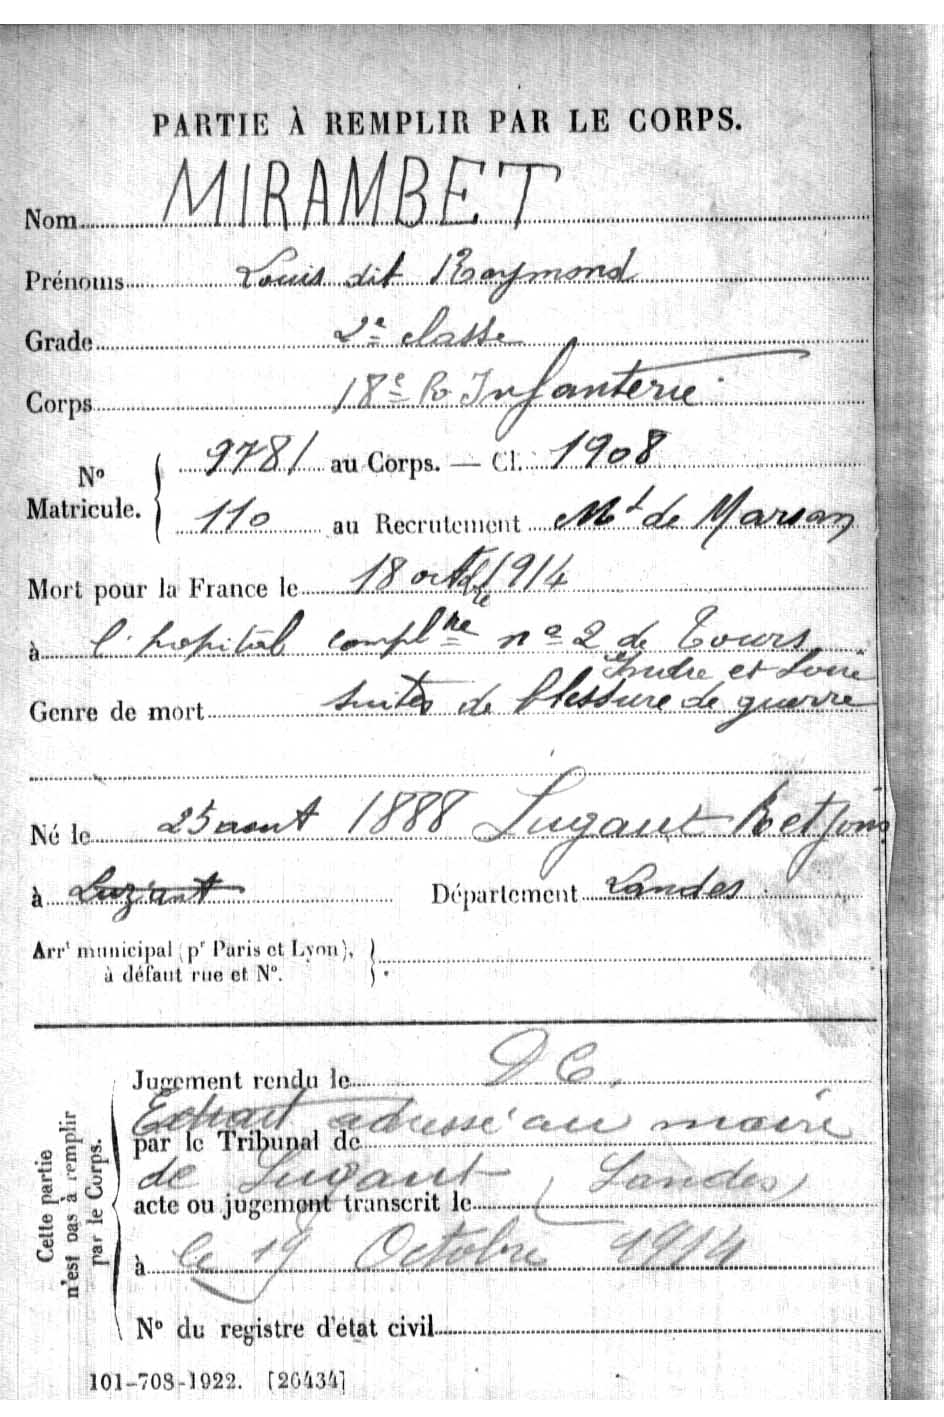 PARTIE À REMPLIR PAR LE CORPS.
Nom MIRAMBET
Prénoms Louis dit Raymond
Grade 2e classe
Corps 18e R Infanterie
No Matricule. 9781 au Corps. — Cl. 1908
110 au Recrutement Mt de Marsan
Mort pour la France le 18 octbre 1914
à l'hopital complre no 2 de Tours
Indre et Loire
Genre de mort suites de blessure de guerre
Né le 25 aout 1888 Lugaut Retjons
à Luzant Département Landes
Arrt municipal (pr Paris et Lyon),
à défaut rue et No.
Cette partie n'est pas à remplir par le Corps.
Jugement rendu le DC.
Extrait adressé au maire
par le Tribunal de
de Lugaut (Landes)
acte ou jugement transcrit le
à le 19 Octobre 1914
No du registre d'état civil
101-708-1922. [26434]